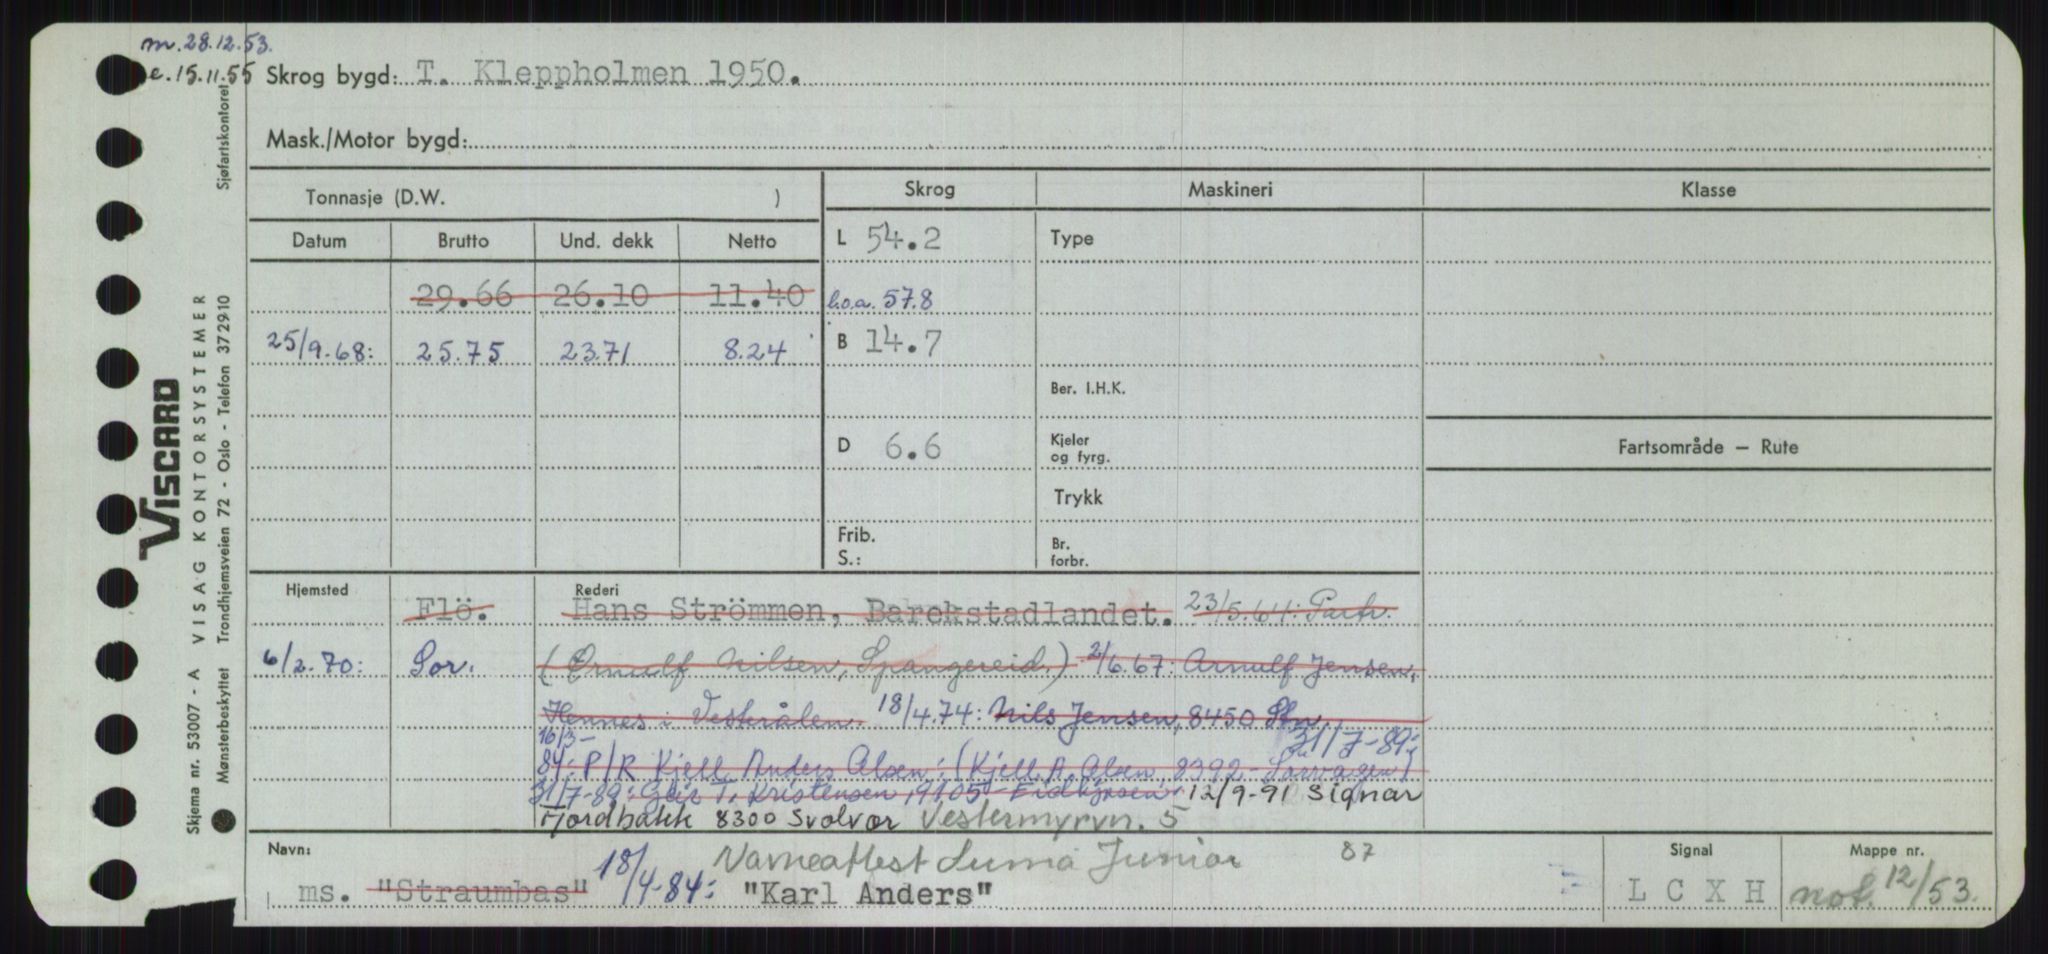 m. 28.12.53.
e. 15.11.55 Skrog bygd: T. Kleppholmen 1950.
Mask./Motor bygd:
Tonnasje (D.W. ) Skrog Maskineri Klasse
Datum Brutto Und. dekk Netto L 54.2 Type
29.66 26.10 11.40 l.o.a. 57.8
25/9.68: 25.75 23.71 8.24 B 14.7
Ber. I.H.K.
D 6.6 Kjeler og fyrg. Fartsområde — Rute
Trykk
Frib. S.: Br. forbr.
Hjemsted Rederi
Flö. Hans Strömmen, Barekstadlandet. 23/5.64: Partr.
6/2.70: Sor. (Ørnulf Nilsen, Spangereid.) 2/6.67: Arnulf Jensen,
Hennes i Vesterålen. 18/4.74: Nils Jensen, 8450 Stn
16/3- 31/7-89:
84: P/R Kjell Anders Olsen: (Kjell A. Olsen, 8392 - Sørvågen)
31/7-89: Geir T. Kristensen, 9105 - Eidkjosen 12/9-91 Signar
Fjordbakk 8300 Svolvær Vestermyrvn. 5
Navn: 18/4-84: Navneattest Luma Junior 87 Signal Mappe nr.
ms. "Straumbas" "Karl Anders" L C X H not. 12/53.
VISCARD
VISAG KONTORSYSTEMER
Skjema nr. 53007 - A
Mønsterbeskyttet Trondhjemsveien 72 - Oslo - Telefon 37 29 10
Sjøfartskontoret